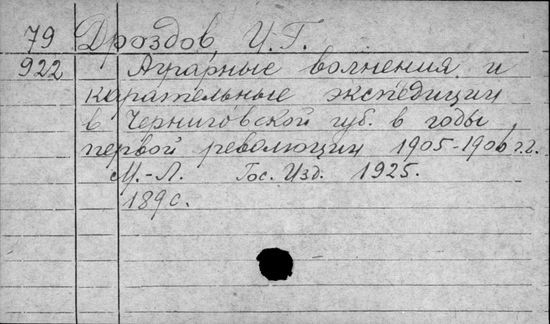 79 Дроздов, И.Г.
922 Аграрные волнения и
карательные экспедиции
в Черниговской губ. в годы
первой революции 1905-1906 г.г.
М.-Л. Гос. Изд. 1925.
189 с.